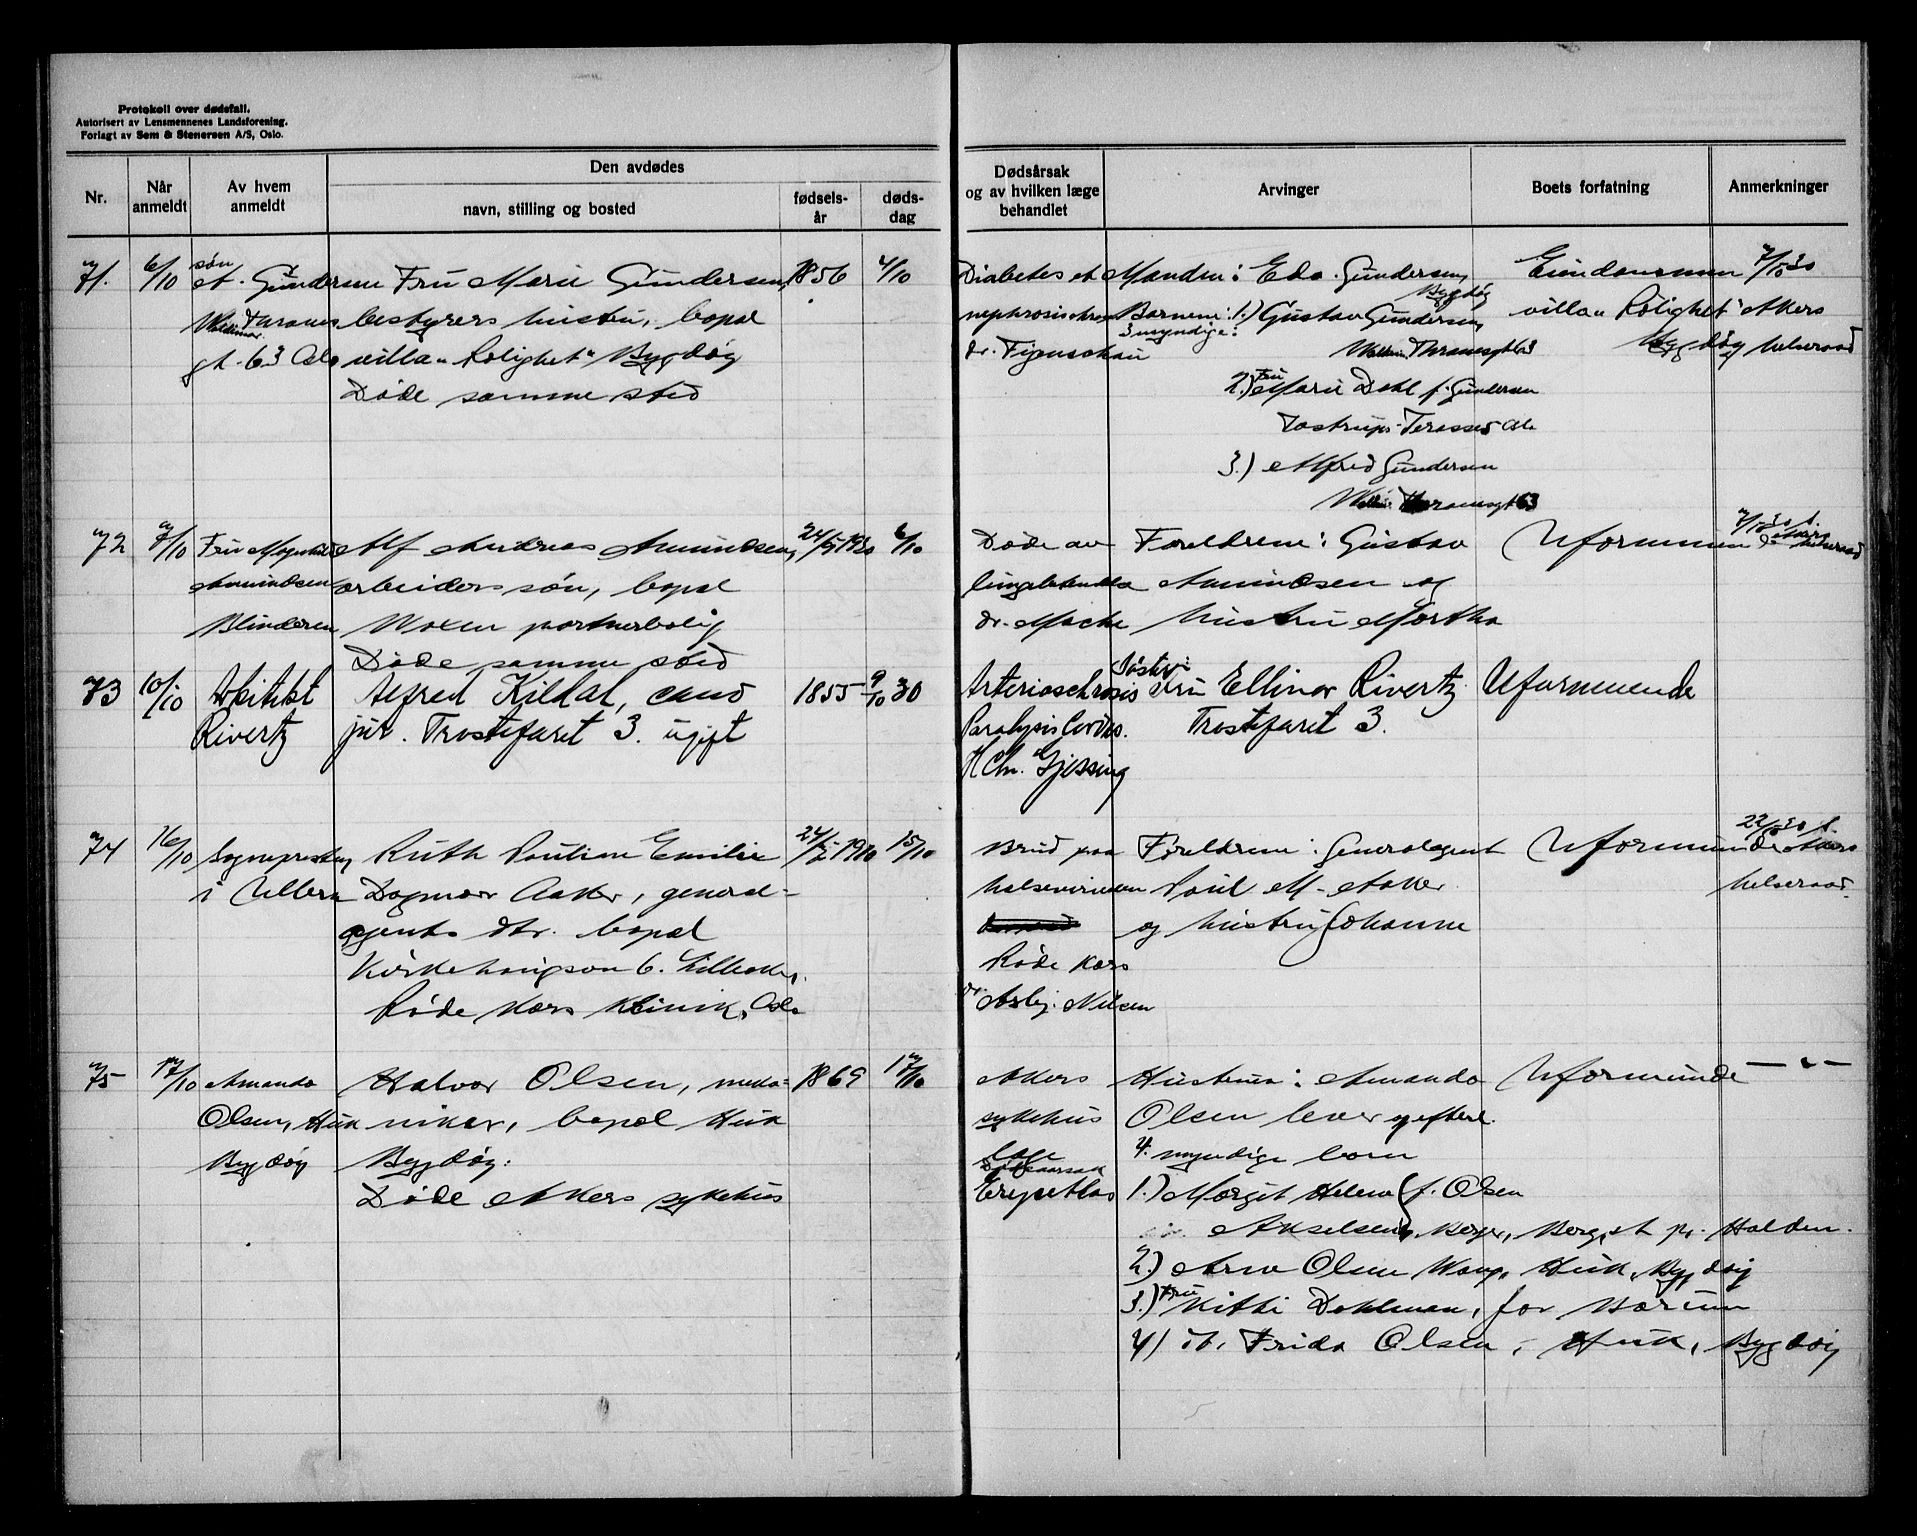 Protokoll over dødsfall.
Autorisert av Lensmennenes Landsforening.
Forlagt av Sem & Stenersen A/S, Oslo.
Nr.
Når anmeldt
Av hvem anmeldt
Den avdødes
navn, stilling og bosted
fødsels-år
døds-dag
Dødsårsak og av hvilken læge behandlet
Arvinger
Boets forfatning
Anmerkninger
71. 6/10 søn
A. Gundersen Fru Marie Gundersen, 1856 4/10
bestyrers hustru, bopæl
gt. 63 Oslo villa "Rolighet" Bygdøy
Døde samme sted
Diabetes et Manden: Edv. Gundersen, Bygdøy
Barnene: 1.) Gustav Gundersen,
3 myndige:
Thranesgt 63
2.) Fru Marie Dahl f. Gundersen
Terasse Oslo
3.) Alfred Gundersen
Thranesgt 63
Eiendommen 7/10 30
villa "Rolighet" Akers
Bygdøy helseraad
72 7/10 Fru Alf Andreas Amundsen, 24/5 1930 6/10
Amundsen arbeiders søn, bopæl
Blinderen portnerbolig
Døde samme sted
Døde av Forældrene: Gustav Uformuende 7/10 30 t. Akers helseraad
Amundsen og
dr. hustru Martha
73 10/10 Arkitekt Alfred Kildal, cand 1855 9/10 30
Rivertz jur. Trostefaret 3. ugift
Søster:
Fru Ellinor Rivertz Uformuende
Trostefaret 3.
Paralysis Cordis.
H Chr. Gjessing
74 16/10 Sognepresten Ruth Pauline Emilie 24/5 1910 15/10
i Ullern Dagmar Aaker, general-
agents dtr. bopæl
6. Lilleaker,
Røde Kors Klinik, Oslo
Brud paa Forældrene: Generalagent Uformuende 22/10 30 t. Akers
halsvirvelen Poul M. Aaker helseraad
og hustru Johanne
Røde Kors
dr. Asbj. Nilsen
75 17/10 Amanda Halvor Olsen, meka- 1869 17/10
Olsen, Huk niker, bopæl Huk
Bygdøy Bygdøy.
Døde Akers sykehus
Akers Hustruen: Amanda Uformuende — " —
sykehus Olsen lever og efterl.
læge 4. myndige barn
Dødsaarsak
1.) Margit Helene f. Olsen
Akselsen, Berger, Berg st pr. Halden.
2.) Arne Olsen Wang, Huk, Bygdøy
3.) Fru Kitti Dahlman, for Bærum
4) Frida Olsen, Huk, Bygdøy